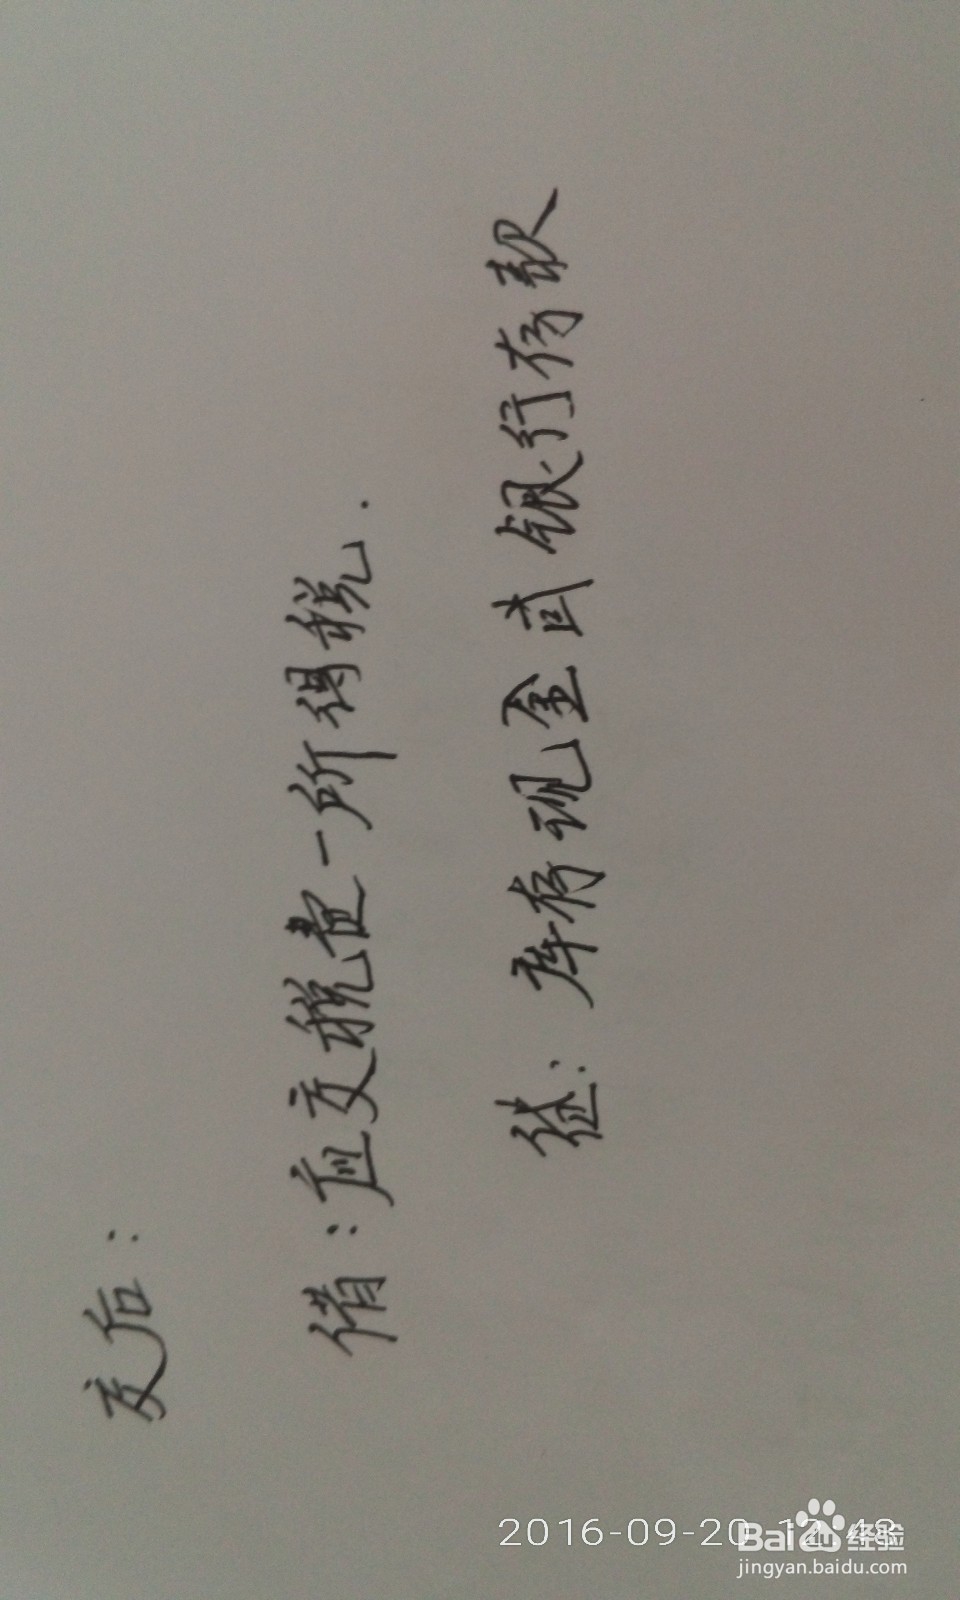 交后:
借:应交税费一所得税.
贷:库存现金或银行存款
2016-09-20 12:48
Bai 经验
jingyan.baidu.com